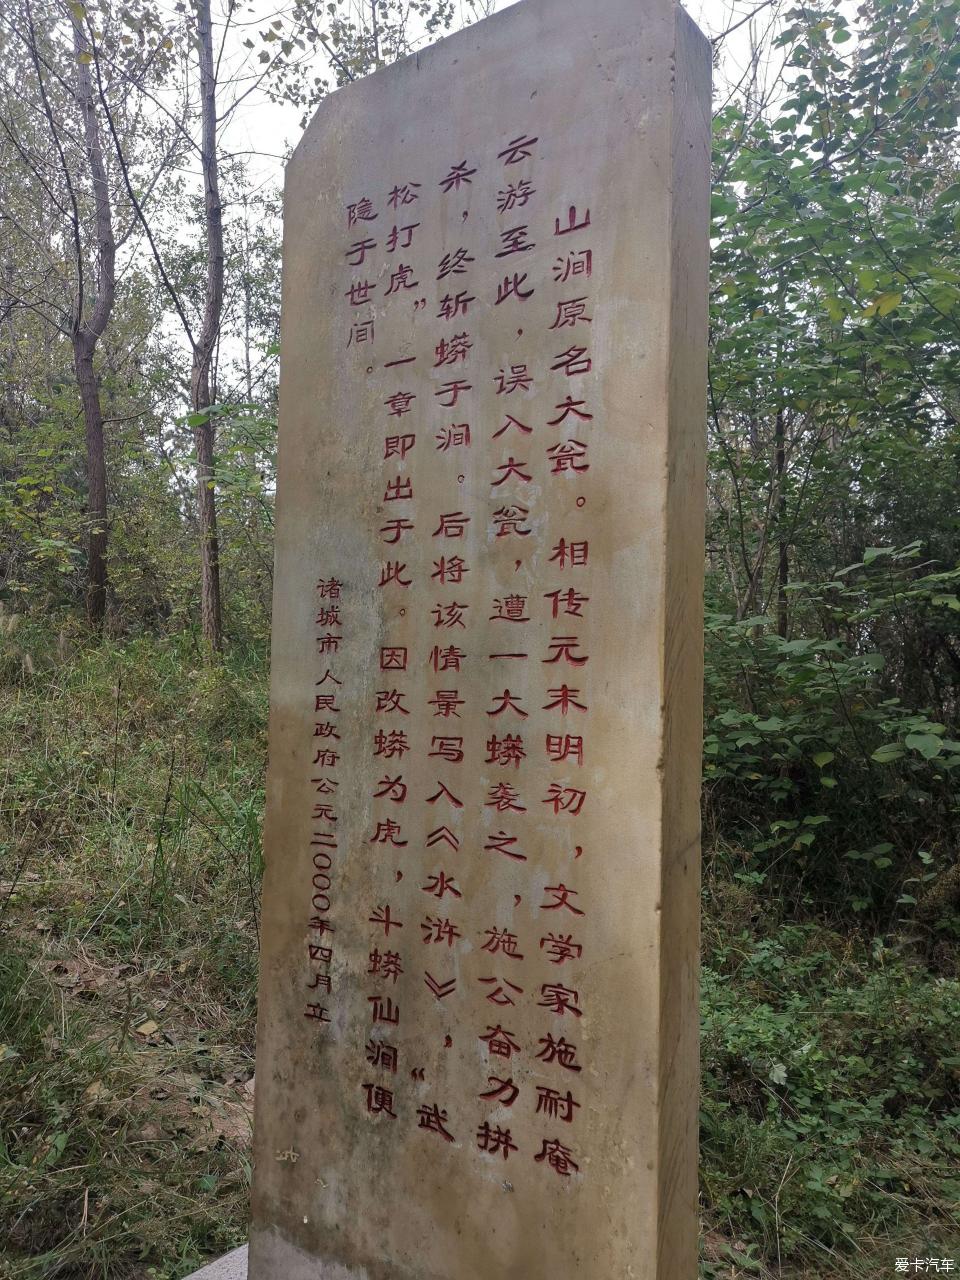 山涧原名大瓮。相传元末明初，文学家施耐庵
云游至此，误入大瓮，遭一大蟒袭之，施公奋力拼
杀，终斩蟒于涧。后将该情景写入《水浒》，“武
松打虎”一章即出于此。因改蟒为虎，斗蟒仙涧便
隐于世间。
诸城市人民政府公元二〇〇〇年四月立
爱卡汽车